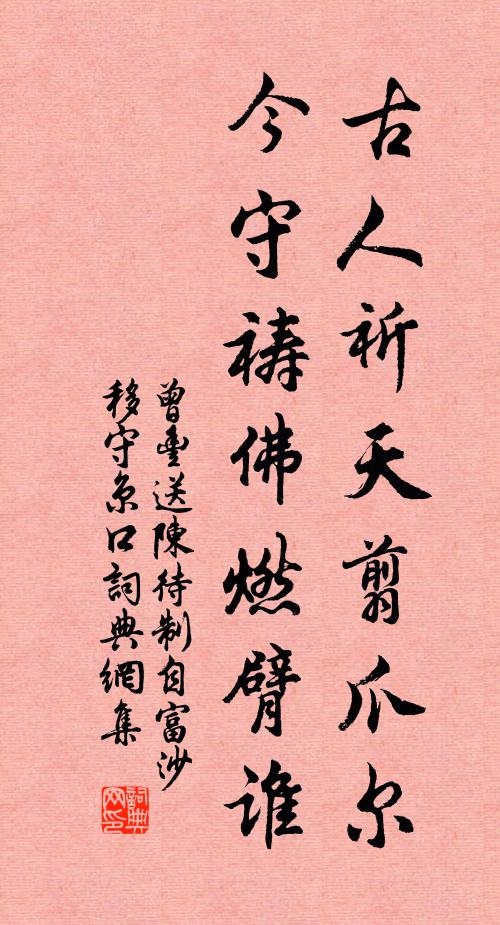 古人祈天翦爪尔
今守祷佛燃臂谁
曾豐送陳待制自富沙
移守京口詞典網集
詞典网印